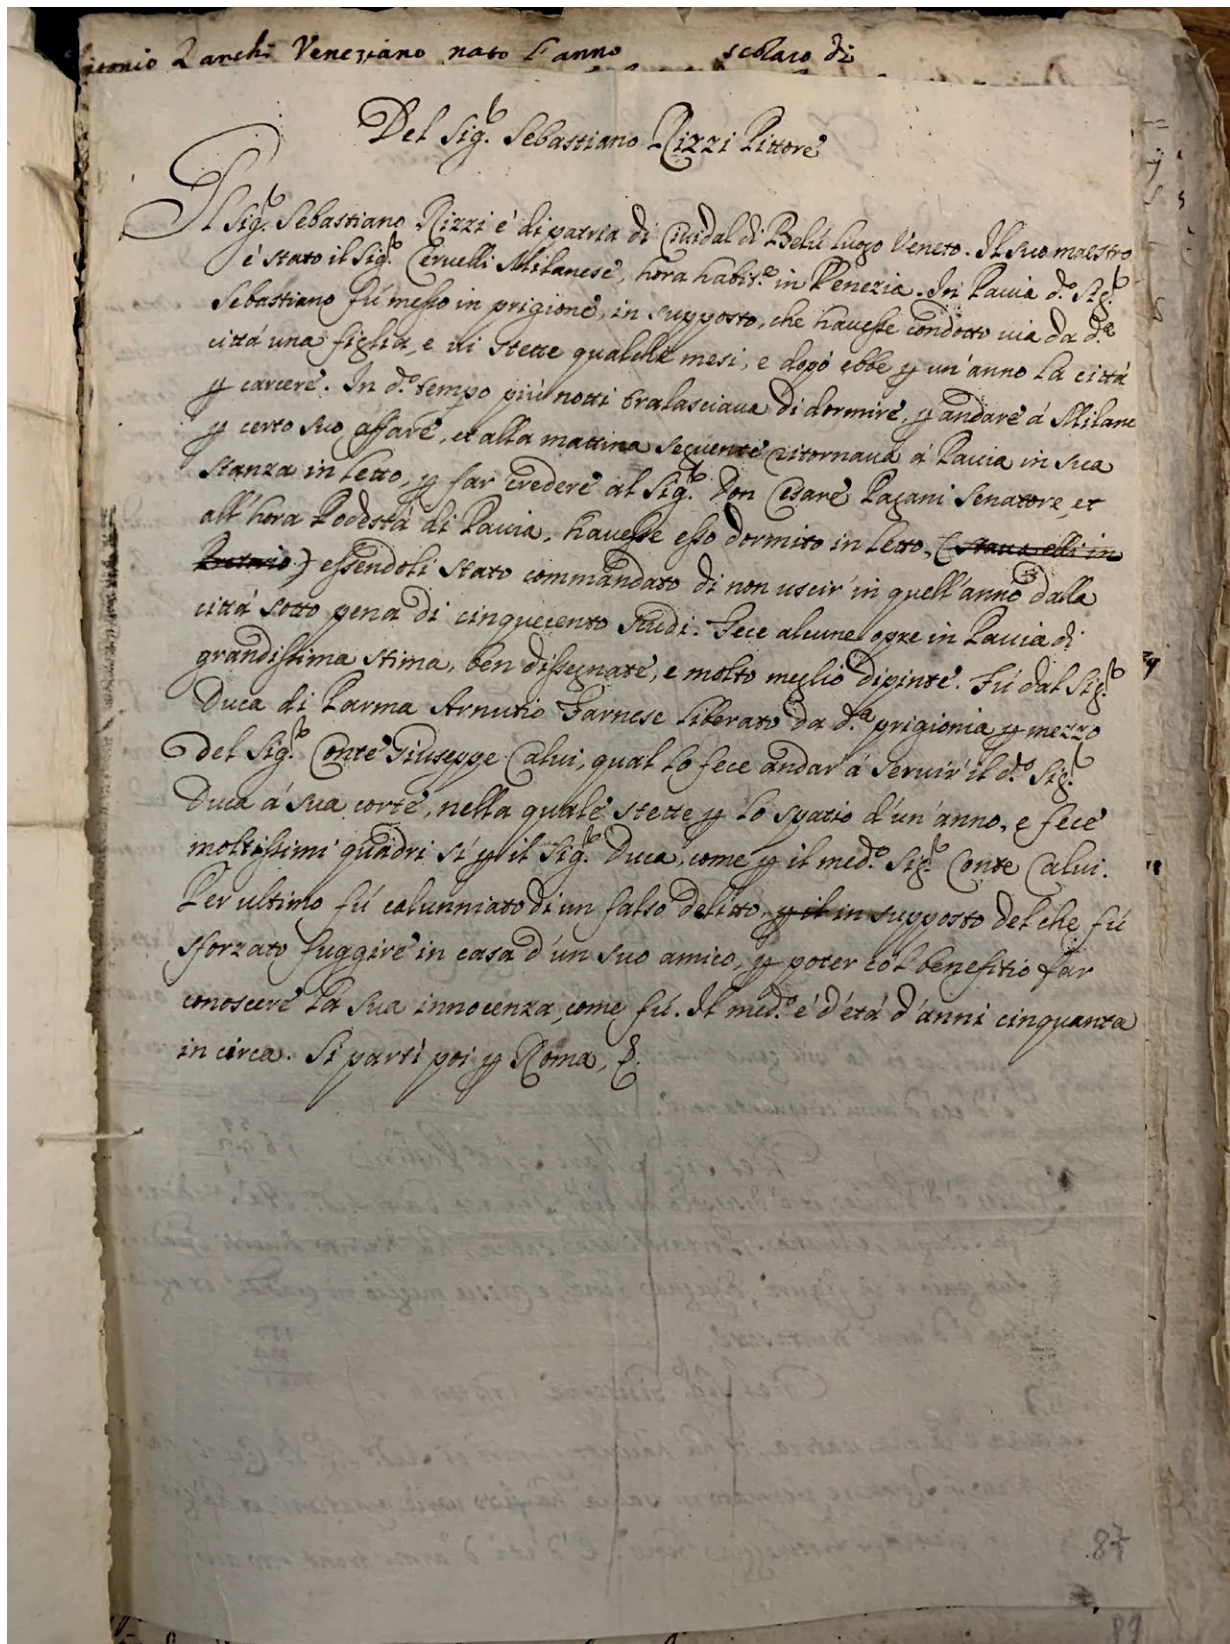 tonio Zanchi Veneziano nato l'anno scolaro di
Del Sig.r Sebastiano Rizzi Pittore
Il Sig.r Sebastiano Rizzi è di patria di Ciuidal di Belú luogo Veneto. Il suo maestro
è stato il Sig.r Ceruelli Milanese, hora habit.e in Venezia. In Pauia d.o Sig.r
Sebastiano fú messo in prigione, in supposto, che hauesse condotto uia da d.a
città una figlia, e ui stette qualche mesi, e dopó ebbe p un'anno la città
p carcere. In d.o tempo più notti tralasciaua di dormire, p andare á Milano
p certo suo affare, et alla mattina seguente ritornaua á Pauia in sua
stanza in letto, p far credere al Sig.r Don Cesare Pagani Senatore, et
all'hora Podestà di Pauia, hauesse esso dormito in letto, (staua elli in
) essendoli stato commandato di non uscir' in quell'anno dalla
città sotto pena di cinquecento scudi. Fece alcune opre in Pauia di
grandissima stima, ben dissegnate, e molto meglio dipinte. Fú dal Sig.r
Duca di Parma Farnese liberato da d.a prigionia p mezzo
del Sig.r Conte Giuseppe Calui, qual lo fece andar' á seruir' il d.o Sig.r
Duca á sua corte, nella quale stette p lo spatio d'un'anno, e fece
moltissimi quadri sí p il Sig.r Duca, come p il med.o Sig.r Conte Calui.
Per ultimo fú calunniato di un falso delitto, p il in supposto del che fú
sforzato fuggire in casa d'un suo amico, p poter co'l benefitio far
conoscere la sua innocenza, come fú. Il med.o é d'etá d'anni cinquanta
in circa. Si partì poi p Roma, &.
87
89